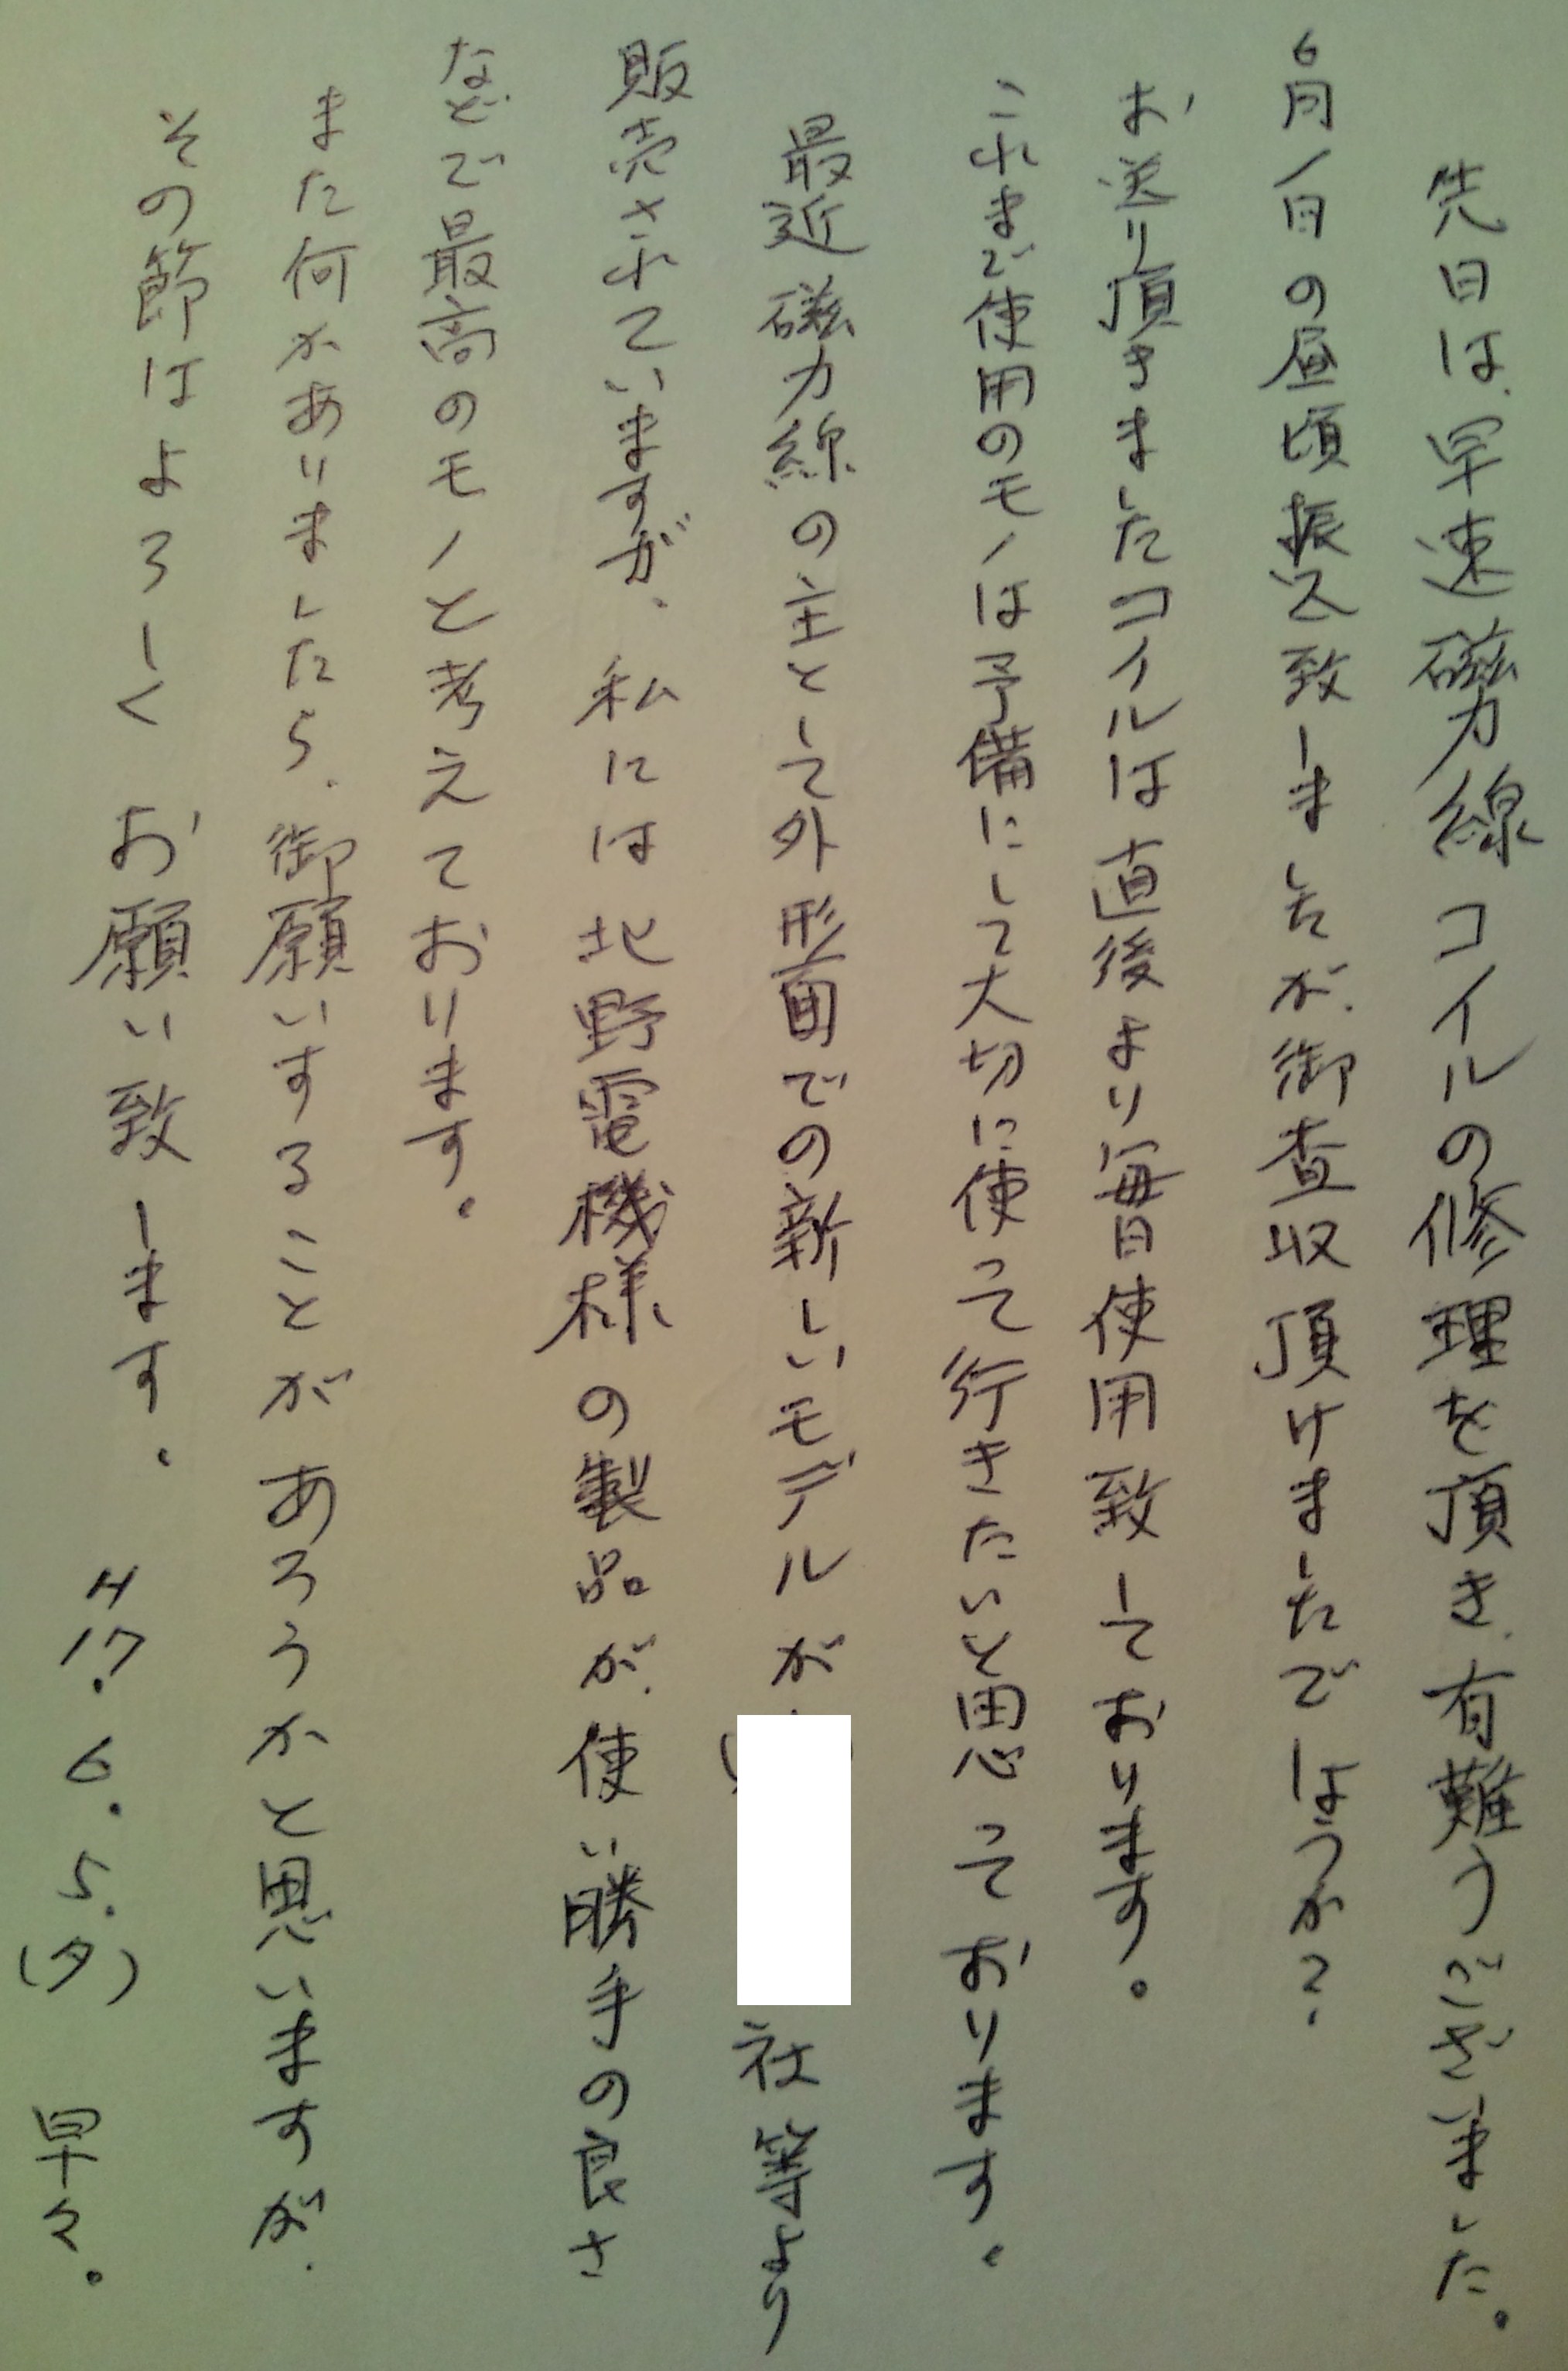 先日は、早速磁力線コイルの修理を頂き、有難うございました。
6月1日の昼頃振込致しましたが、御査収頂けましたでしょうか?
お送り頂きましたコイルは直後より毎日使用致しております。
これまで使用のモノは予備にして大切に使って行きたいと思っております。
最近磁力線の主として外形面での新しいモデルが、社等より
販売されていますが、私には北野電機様の製品が、使い勝手の良さ
などで最高のモノと考えております。
また何かありましたら、御願いすることがあろうかと思いますが、
その節はよろしくお願い致します。
H17.6.5.(夕)早々。